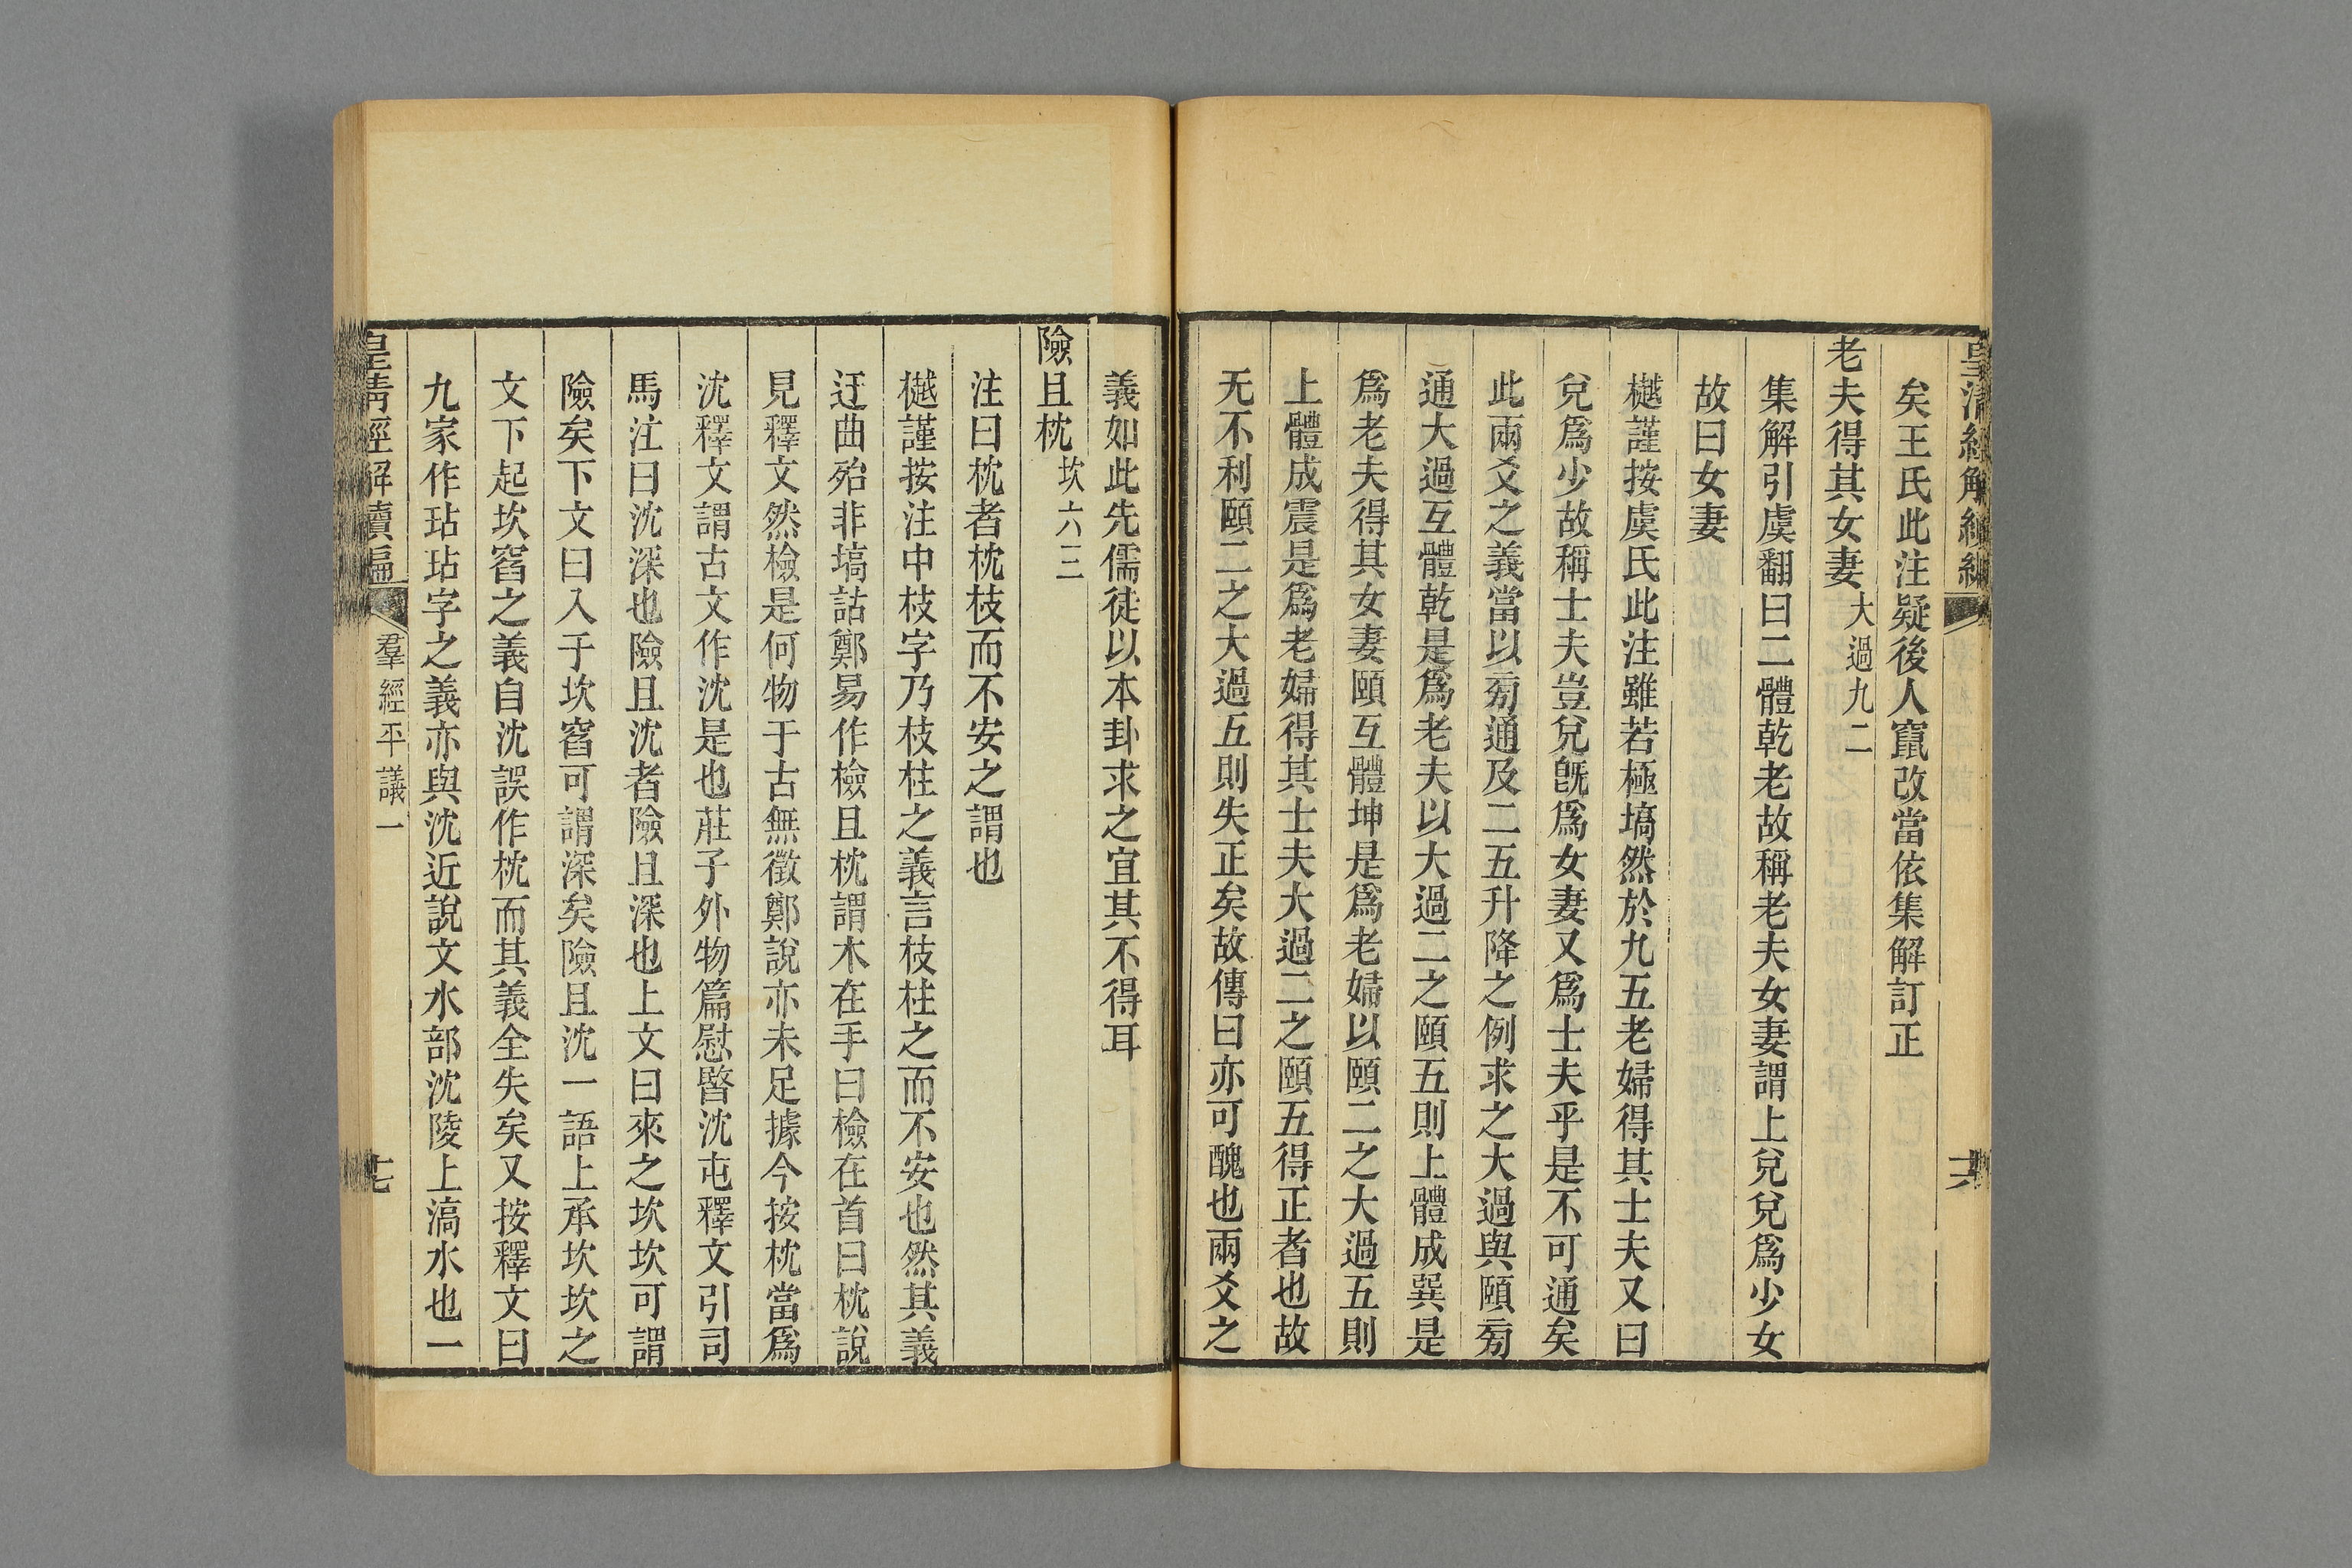 皇清經解續編
十六
矣王氏此注疑後人竄改當依集解訂正
老夫得其女妻大過九二
集解引虞翻曰二體乾老故稱老夫女妻謂上兌兌爲少女
故曰女妻
樾謹按虞氏此注雖若極塙然於九五老婦得其士夫又曰
兌爲少故稱士夫豈兌旣爲女妻又爲士夫乎是不可通矣
此兩爻之義當以㫄通及二五升降之例求之大過與頤㫄
通大過互體乾是爲老夫以大過二之頤五則上體成巽是
爲老夫得其女妻頤互體坤是爲老婦以頤二之大過五則
上體成震是爲老婦得其士夫大過二之頤五得正者也故
无不利頤二之大過五則失正矣故傳曰亦可醜也兩爻之
義如此先儒徒以本卦求之宜其不得耳
險且枕坎六三
注曰枕者枕枝而不安之謂也
樾謹按注中枝字乃枝柱之義言枝柱之而不安也然其義
迂曲殆非塙詁鄭易作檢且枕謂木在手曰檢在首曰枕說
見釋文然檢是何物于古無徵鄭說亦未足據今按枕當爲
沈釋文謂古文作沈是也莊子外物篇慰暋沈屯釋文引司
馬注曰沈深也險且沈者險且深也上文曰來之坎坎可謂
險矣下文曰入于坎窞可謂深矣險且沈一語上承坎坎之
文下起坎窞之義自沈誤作枕而其義全失矣又按釋文曰
九家作玷玷字之義亦與沈近說文水部沈陵上滈水也一
皇清經解續編
羣經平議一
十七